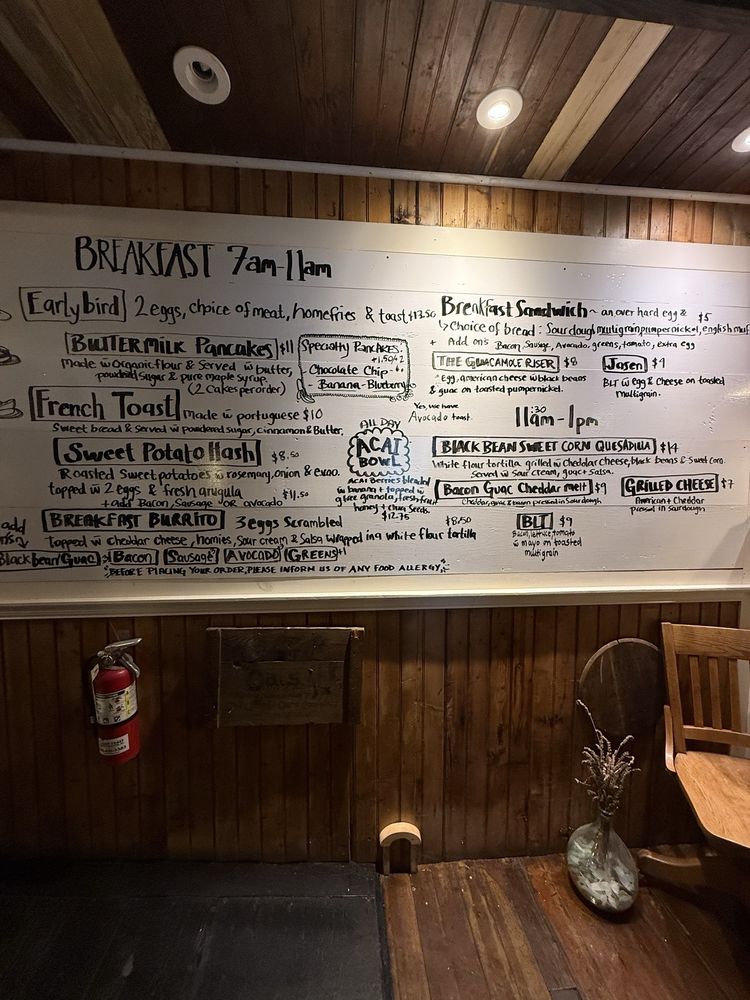 BREAKFAST 7am-11am
Earlybird 2 eggs, choice of meat, homefries & toast $13.50
BUTTERMILK PANCAKES $11
made w organic flour & Served w butter,
powdered sugar & pure maple syrup.
(2 Cakes per order)
SPECIALTY PANCAKES:
Chocolate Chip
- Banana - Blueberry
French Toast made w portuguese $10
Sweet bread & served w powdered sugar, cinnamon & Butter.
Sweet Potato Hash $8.50
Roasted Sweet potatoes w rosemary, onion & evoo.
topped w 2 eggs & fresh arugula
+ add Bacon, Sausage or avocado $11.50
ALL DAY
ACAI
BOWL
ACAI Berries blended
w banana + topped w
g free granola, fresh fruit
honey + Chia Seeds.
$12.75
BREAKFAST BURRITO 3 eggs Scrambled $8.50
topped w cheddar cheese, homies, Sour cream & Salsa wrapped in a white flour tortilla
add
Black bean/Guac Bacon Sausage AVOCADO GREENS +1
BEFORE PLACING YOUR ORDER, PLEASE INFORM US OF ANY FOOD ALLERGY
Breakfast Sandwich ~ an over hard egg & $5
Choice of bread: Sourdough multigrain pumpernickel, english muf
+ Add on's Bacon, Sausage, Avocado, greens, tomato, extra egg
THE GUACAMOLE RISER $8
Egg, american cheese w black beans
& guac on toasted pumpernickel.
Jasen $9
BLT w egg & Cheese on toasted
multigrain.
Yes, we have
Avocado toast.
11:30am - 1pm
BLACK BEAN SWEET CORN QUESADILLA $14
White flour tortilla grilled w Cheddar cheese, black beans & Sweet corn.
Served w Sour cream, guac + Salsa.
Bacon Guac Cheddar melt $9
Cheddar, guac & bacon pressed in Sourdough
GRILLED CHEESE $7
American + Cheddar
pressed in Sourdough
BLT $9
Bacon, lettuce, tomato
w mayo on toasted
multigrain